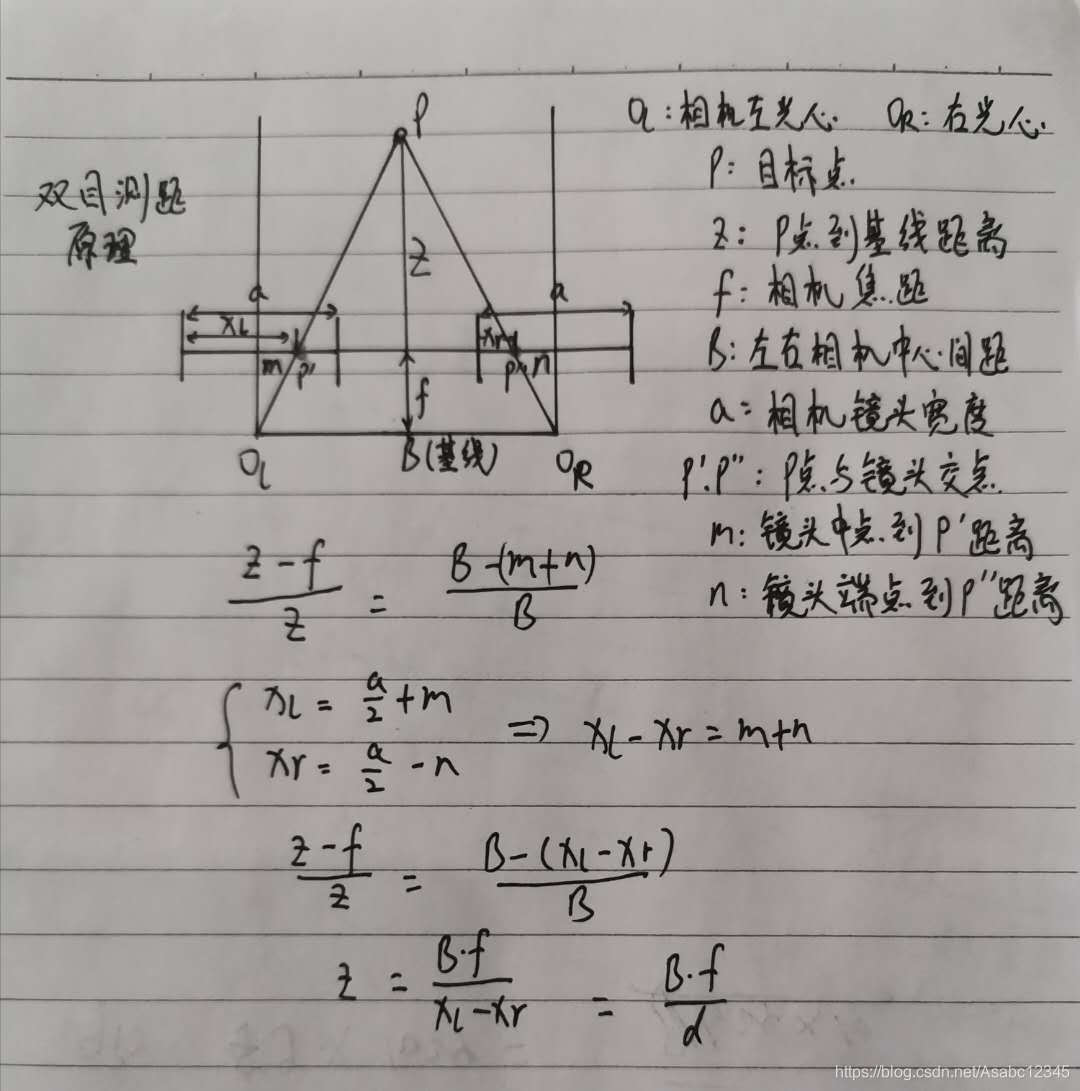 双目测距
原理
P
Z
a
a
xl
xr
m
P'
P''
n
f
O_L
B(基线)
O_R
O_L:相机左光心. O_R:右光心.
P:目标点.
z:P点到基线距离
f:相机焦距
B:左右相机中心间距
a:相机镜头宽度
P'.P'':P点与镜头交点.
m:镜头中点到P'距离
n:镜头端点到P''距离
(z-f)/z = (B-(m+n))/B
{ xl = a/2 + m
xr = a/2 - n
⇒ xl - xr = m+n
(z-f)/z = (B-(xl-xr))/B
z = B·f/(xl-xr) = B·f/d
https://blog.csdn.net/Asabc12345